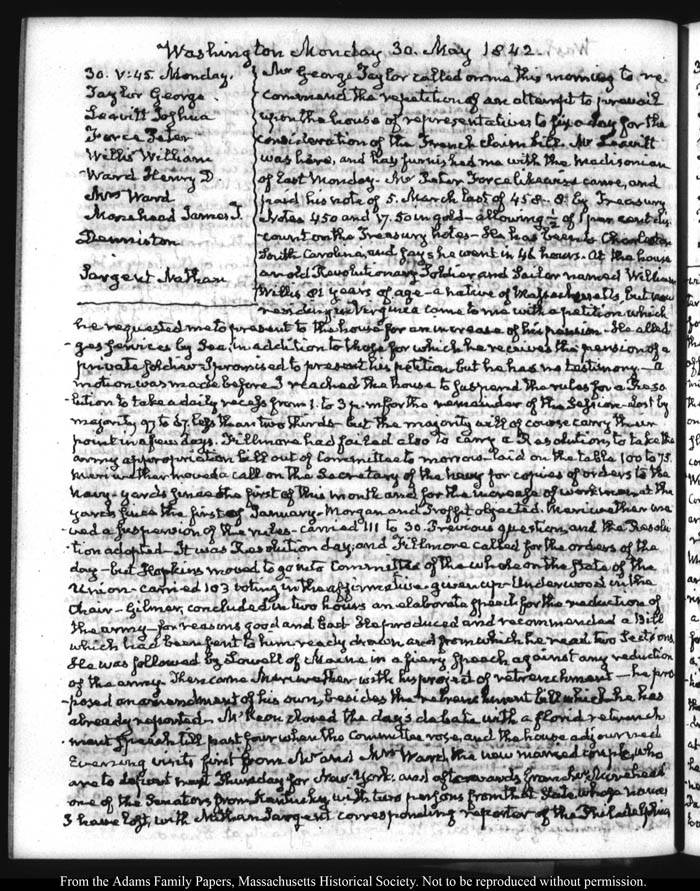 Washington Monday 30. May 1842.
30. V:45. Monday.
Taylor George.
Leavitt Joshua
Force Peter
Willis William
Ward Henry D.
Mrs Ward
Morehead James T.
Denniston
Sargent Nathan
Mr George Taylor called on me this morning to re-
commend the repetition of an attempt to prevail
upon the house of representatives to fix a day for the
consideration of the French claim bill. Mr Leavitt
was here, and has furnished me with the Madisonian
of last Monday. Mr Peter Force likewise came, and
paid his note of 5. March last of 458. 8. by Treasury
Notes 450 and 17.50 in gold - allowing of 1 per cent dis-
count on the Treasury notes - He has been to Charleston
South Carolina, and says he went in 46 hours. At the house
an old Revolutionary Soldier and Sailor named William
Willis 81 years of age - a native of Massachusetts but now
residing in Virginia came to me with a petition which
he requested me to present to the house for an increase of his pension - He alled-
-ges services by Sea, in addition to those for which he receives the pension of a
private soldier I promised to present his petition but he has no testimony - a
motion was made before I reached the house to suspend the rules for a Reso-
-lution to take a daily recess from 1. to 3 p.m for the remainder of the Session - Lost by
majority 97 to 57. less than two thirds - but the majority will of course carry their
point in a few days. Fillmore had failed also to carry a Resolution, to take the
army appropriation bill out of Committee to morrow. laid on the table 100 to 75.
Meriwether moved a call on the Secretary of the navy for copies of orders to the
Navy-yards since the first of this month and for the increase of workmen at the
yards since the first of January - Morgan and Proffit objected. Meriwether mo-
-ved a suspension of the rules - carried 111 to 30. Previous question, and the Resolu-
-tion adopted - It was Resolution day, and Fillmore called for the orders of the
day - but Hopkins moved to go into Committee of the whole on the state of the
Union - carried 103 voting in the affirmative - given up - Underwood in the
Chair - Gilmer, concluded in two hours an elaborate speech for the reduction of
the army - for reasons good and bad - He produced and recommended a Bill
which had been sent to him ready drawn and from which he read two Sections
He was followed by Lowell of Maine in a fiery speech against any reduction
of the army. Then came Meriwether with his project of retrenchment - he pro-
-posed an amendment of his own, besides the retrenchment bill which he has
already reported. McKeon closed the day's debate with a florid retrench-
-ment speech till past four when the Committee rose, and the house adjourned
Evening visits first from Mr and Mrs Ward, the new married couple, who
are to depart next Thursday for New-York; and afterwards from Mr Morehead
one of the Senators from Kentucky, with two persons from that State, whose names
I have lost, with Nathan Sargent corresponding reporter of the Philadelphia
From the Adams Family Papers, Massachusetts Historical Society. Not to be reproduced without permission.